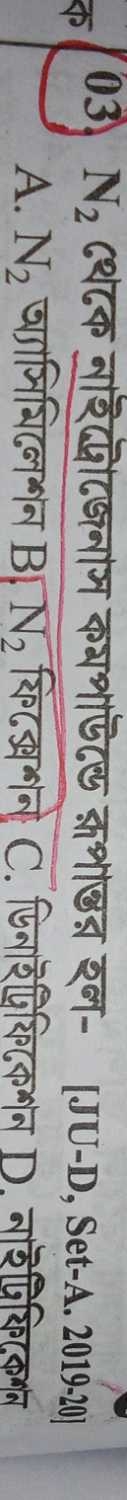 03. N₂ থেকে নাইট্রোজেনাস কমপাউন্ডে রূপান্তর হল- [JU-D, Set-A. 2019-20]
A. N₂ অ্যাসিমিলেশন B. N₂ ফিক্সেশন C. ডিনাইট্রিফিকেশন D. নাইট্রিফিকেশন